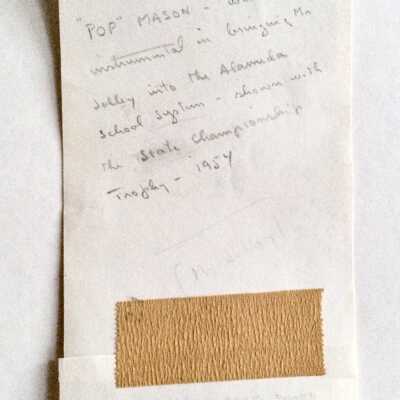 "POP" MASON -
instrumental in bringing Mr
Jolley into the Alameda
School System - shown with
the State Championship
Trophy - 1954